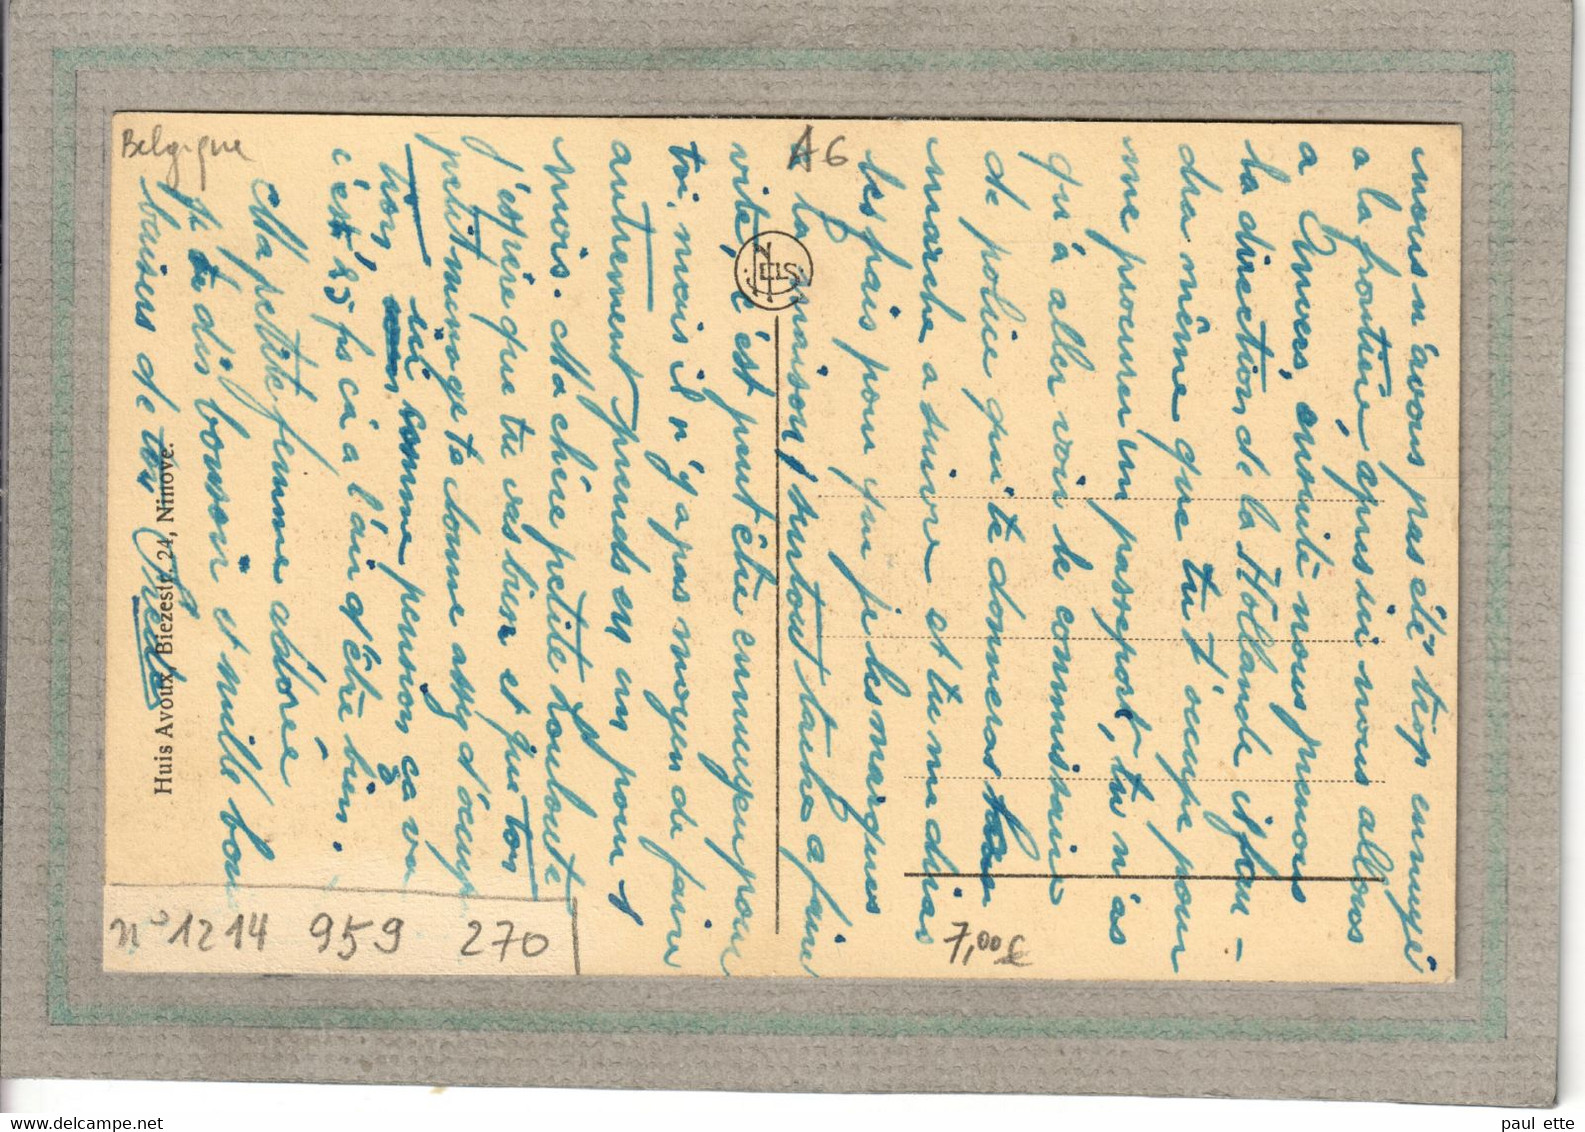 nous n'avons pas été trop ennuyé
a la frontière, apressin nous allons
a Anvers, ensuite nous prenons
la direction de la Hollande il fau-
dra même que tu t'occupe pour
me procurer un passeport, tu n'as
qu'à aller voir le commissaire
de police qui te donneras la
marche a suivre et tu me diras
les frais pour que je les marques
a la maison, surtout tache a faire
vite, c'est peut être ennuyeu pour
toi, mais il n'y a pas moyen de faire
autrement prends en un pour 4
mois. Ma chère petite Louloute
j'espère que tu vas bien et que ton
petit menage te donne assez d'occupa
tion, ici comme pension ça va
c'est 25 frs ça a l'air d'être bien.
Ma petite femme adorée
je te dis bonsoir et mille bon
baisers de ton
Huis Avoux, Biezestr. 24, Ninove.
NELS
Belgique
A6
n° 1214 959 270
7,00€
paul ette